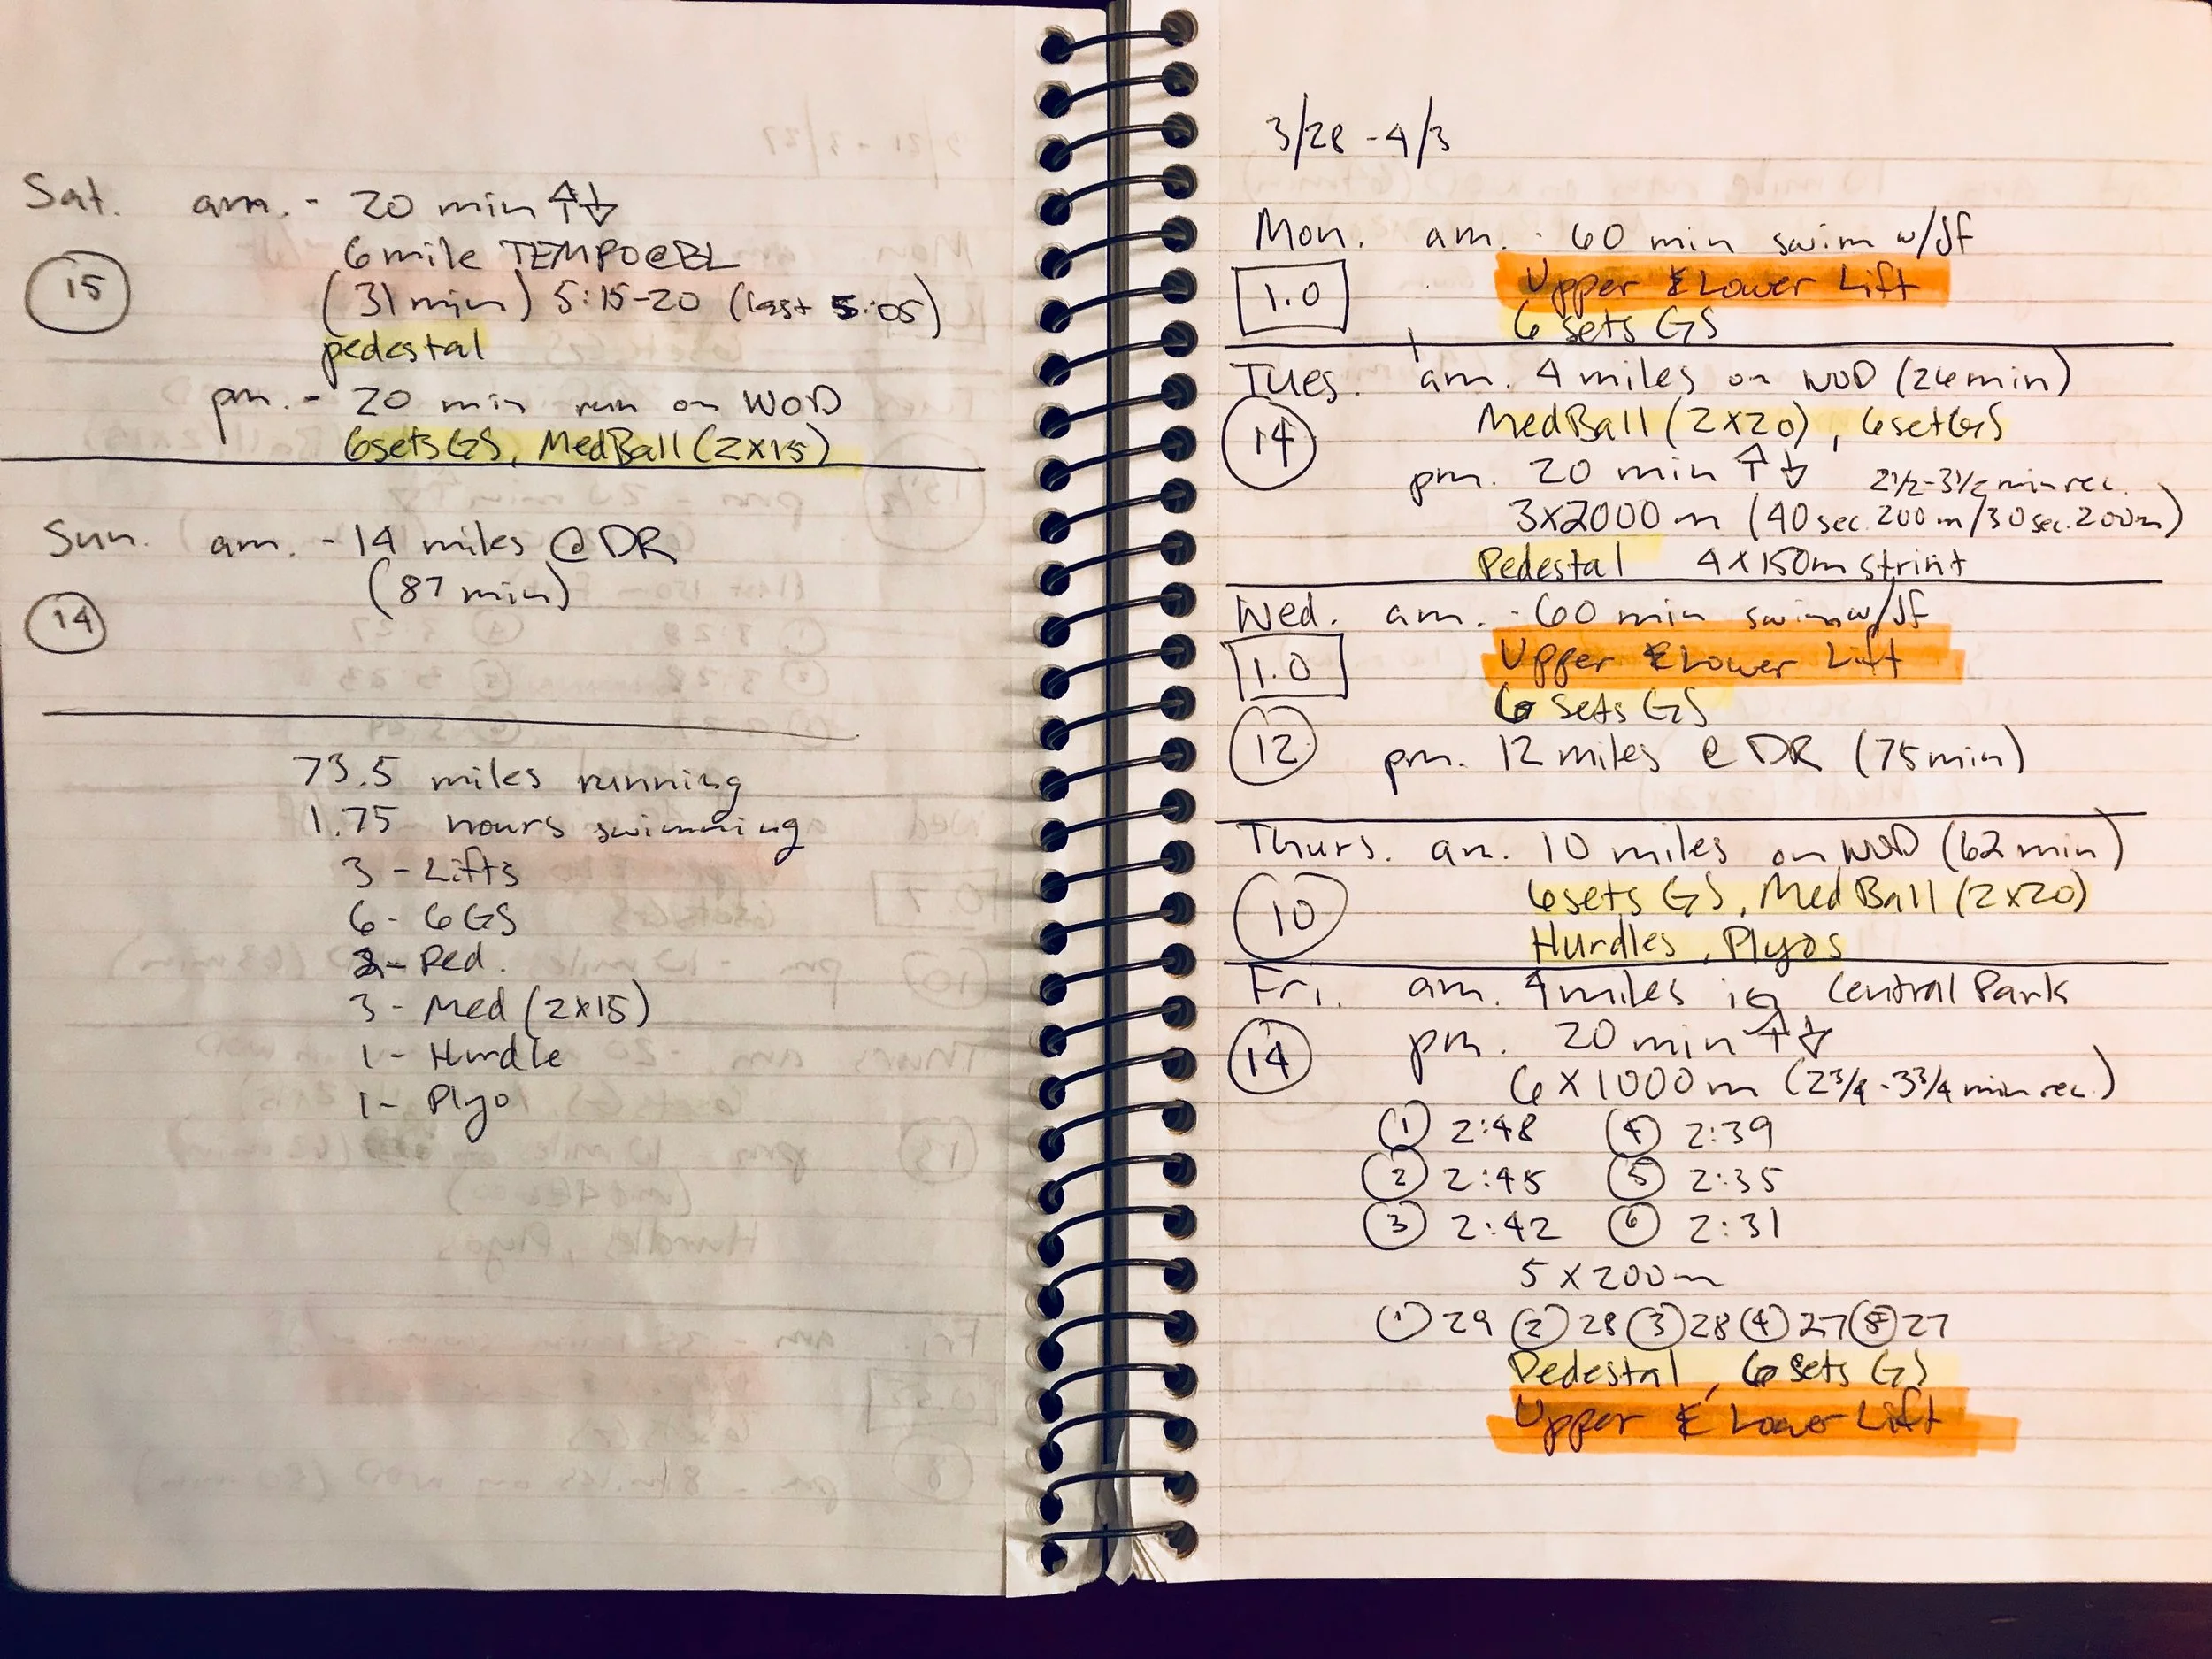 Sat. am. - 20 min ↑↓
6 mile TEMPO@BL
15
(31 min) 5:15-20 (last 5:05)
pedestal
pm. - 20 min run on WOD
6sets GS, MedBall (2x15)
Sun. am. - 14 miles @ DR
(87 min)
14
73.5 miles running
1.75 hours swimming
3 - Lifts
6 - 6 GS
2 - Ped.
3 - Med (2x15)
1 - Hurdle
1 - Plyo
3/28 - 4/3
Mon. am. - 60 min swim w/JF
1.0 Upper & Lower Lift
6 sets GS
Tues. am. 4 miles on WOD (26min)
MedBall (2x20), 6setGS
14
pm. 20 min ↑↓ 2½-3½ min rec.
3x2000m (40sec.200m/30sec.200m)
Pedestal 4x150m strint
Wed. am. - 60 min swim w/JF
1.0 Upper & Lower Lift
6 sets GS
12 pm. 12 miles @ DR (75min)
Thurs. am. 10 miles on WOD (62min)
6sets GS, MedBall (2x20)
10
Hurdles, Plyos
Fri. am. 4miles in Central Park
14 pm. 20 min ↑↓
6 x 1000m (2¾-3¾ min rec.)
① 2:48 ④ 2:39
② 2:45 ⑤ 2:35
③ 2:42 ⑥ 2:31
5 x 200m
① 29 ② 28 ③ 28 ④ 27 ⑤ 27
Pedestal, 6 sets GS
Upper & Lower Lift